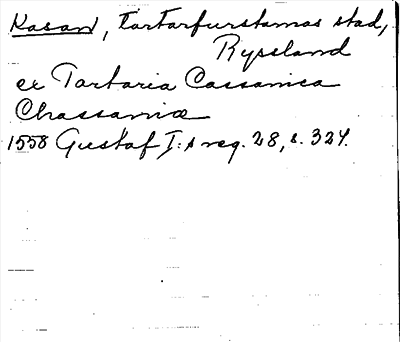 Kasan, tartarfurstarnas stad,
Ryssland
ex Tartaria Cassanica
Chassaniæ
1558 Gustaf I:s reg. 28, s. 324.